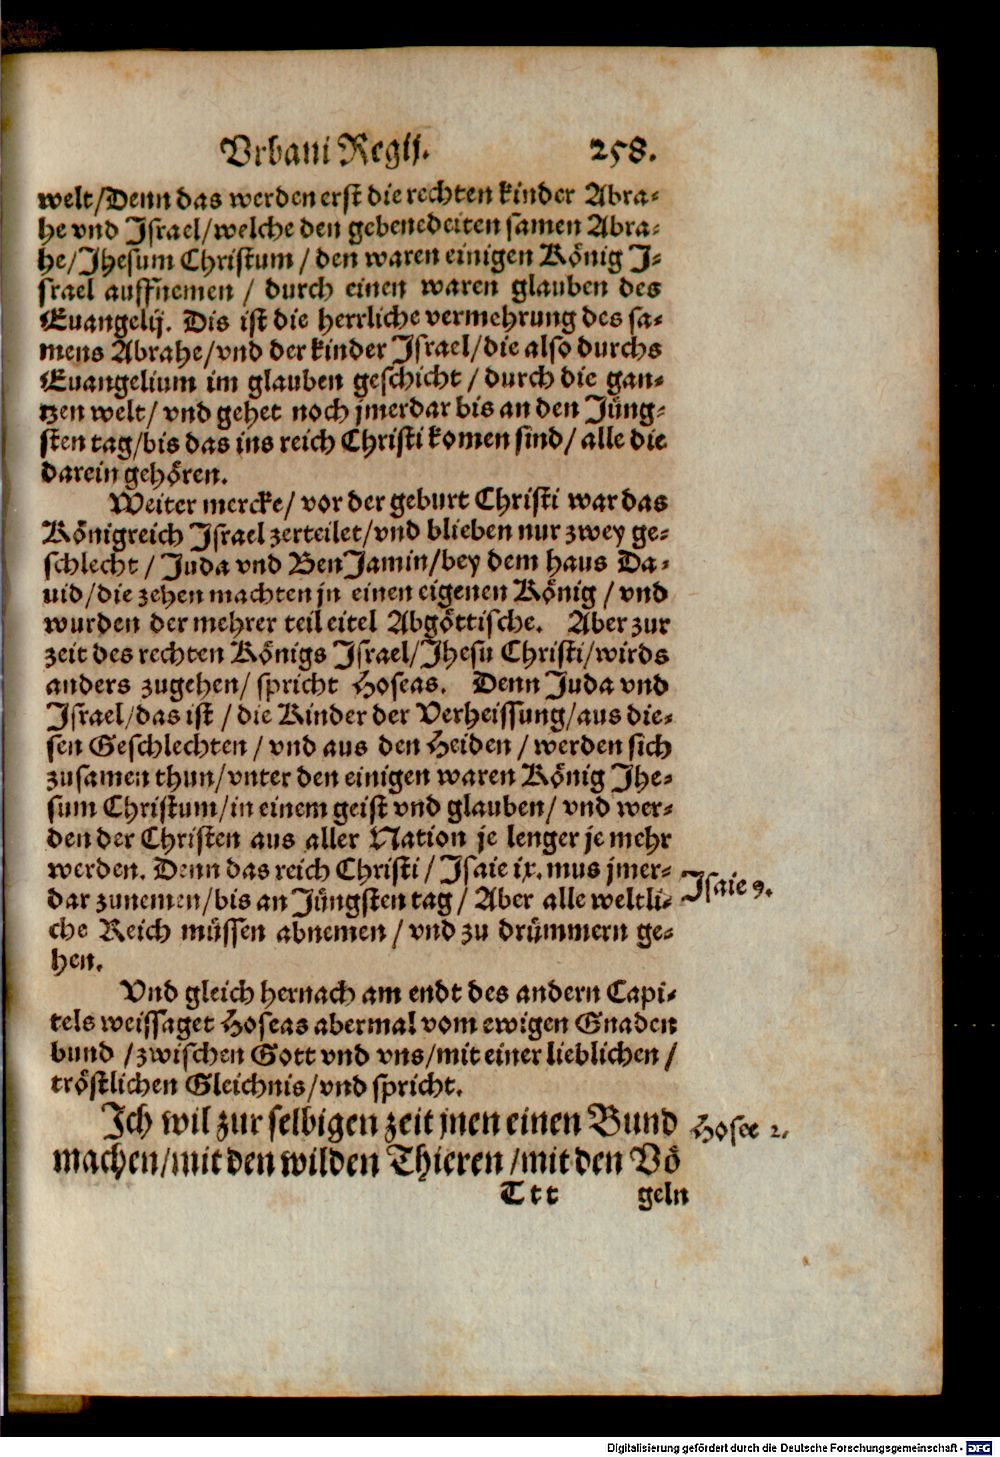 Vrbani Regij. 258.
welt/Denn das werden erst die rechten kinder Abra-
he vnd Jsrael/welche den gebenedeiten samen Abra-
he/Jhesum Christum / den waren einigen König J-
srael auffnemen / durch einen waren glauben des
Euangelij. Dis ist die herrliche vermehrung des sa-
mens Abrahe/vnd der kinder Jsrael/die also durchs
Euangelium im glauben geschicht / durch die gan-
tzen welt/ vnd gehet noch jmerdar bis an den Jüng-
sten tag/bis das ins reich Christi komen sind/ alle die
darein gehören.
Weiter mercke/ vor der geburt Christi war das
Königreich Jsrael zerteilet/vnd blieben nur zwey ge-
schlecht / Juda vnd BenJamin/bey dem haus Da-
uid/die zehen machten jn einen eigenen König / vnd
wurden der mehrer teil eitel Abgöttische. Aber zur
zeit des rechten Königs Jsrael/Jhesu Christi/wirds
anders zugehen/ spricht Hoseas. Denn Juda vnd
Jsrael/das ist / die Kinder der Verheissung/aus die-
sen Geschlechten / vnd aus den Heiden / werden sich
zusamen thun/vnter den einigen waren König Jhe-
sum Christum/in einem geist vnd glauben/ vnd wer-
den der Christen aus aller Nation je lenger je mehr
werden. Denn das reich Christi / Jsaie ix. mus jmer-
Jsaie 9.
dar zunemen/bis an Jüngsten tag / Aber alle weltli-
che Reich müssen abnemen / vnd zu drümmern ge-
hen.
Vnd gleich hernach am endt des andern Capi-
tels weissaget Hoseas abermal vom ewigen Gnaden
bund /zwischen Gott vnd vns/mit einer lieblichen /
tröstlichen Gleichnis/vnd spricht.
Jch wil zur selbigen zeit jnen einen Bund
Hosee 2.
machen/mit den wilden Thieren /mit den Vö
Ttt geln
Digitalisierung gefördert durch die Deutsche Forschungsgemeinschaft - DFG